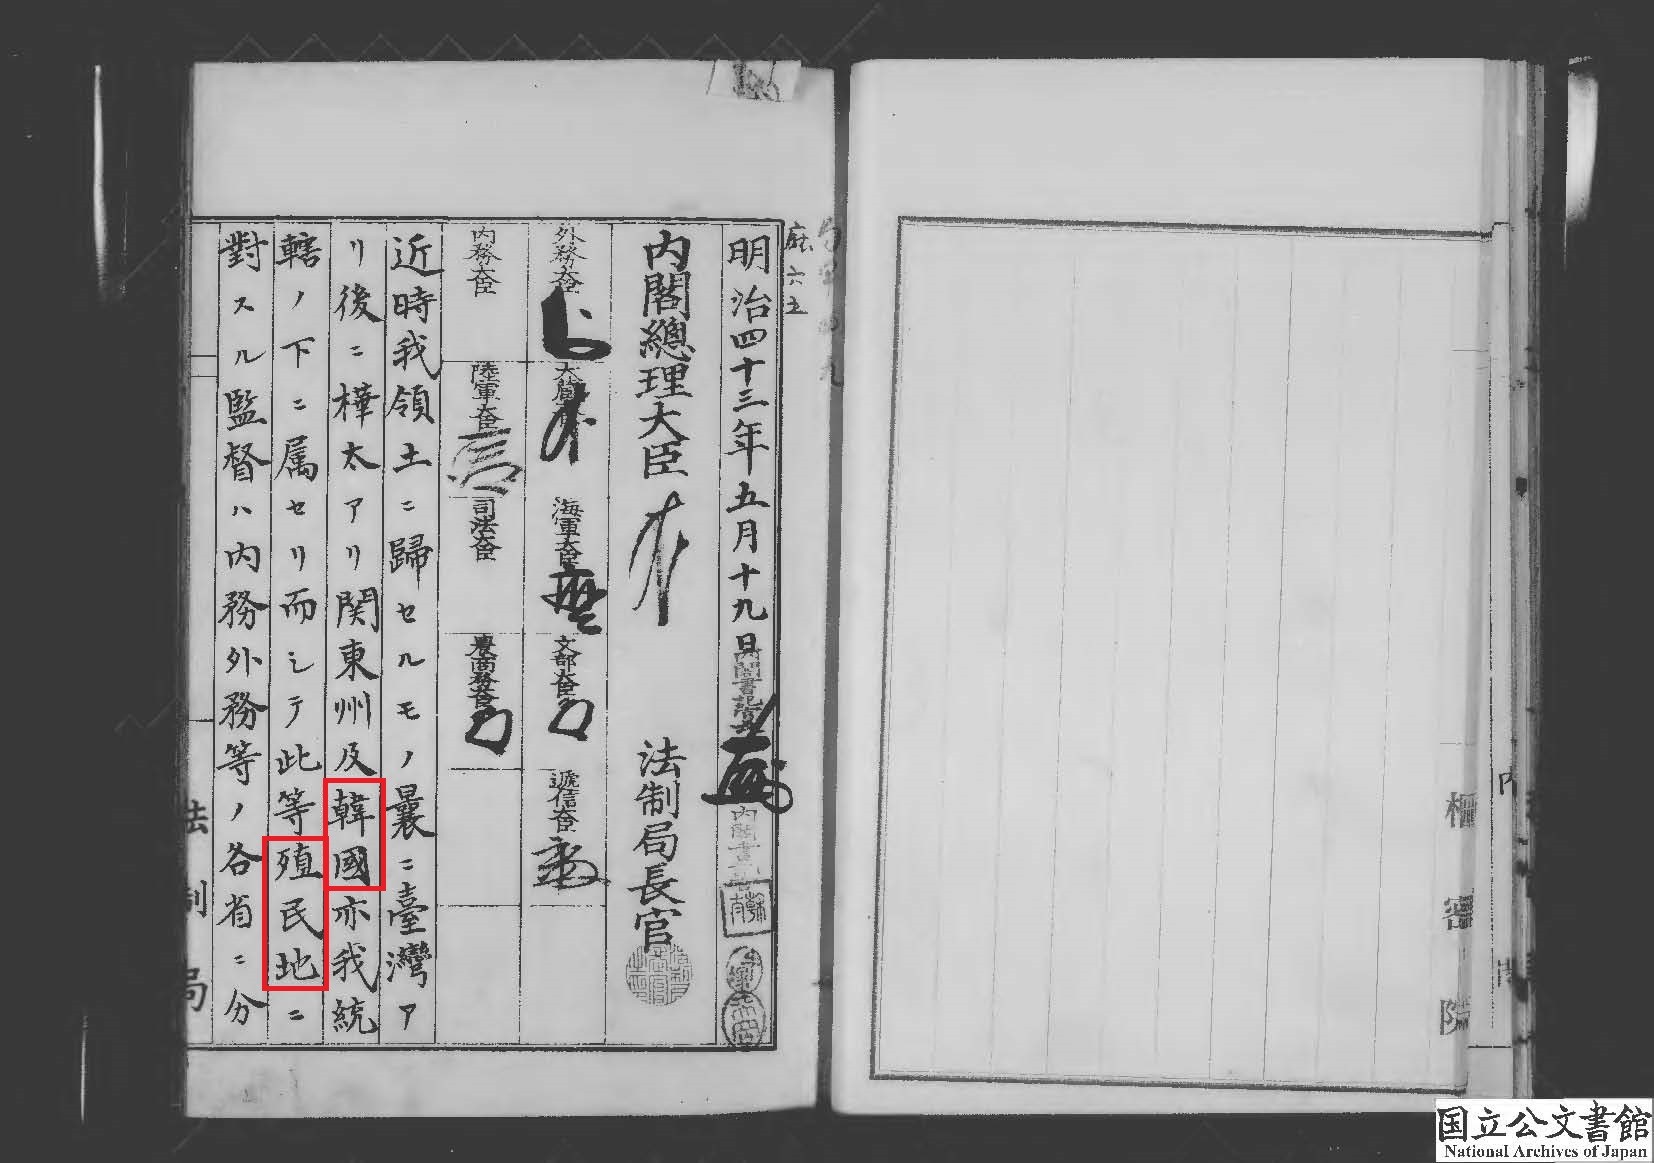 樞密院
明治四十三年五月十九日
内閣總理大臣
法制局長官
外務大臣
大蔵
海軍大臣
文部大臣
遞信大臣
内務大臣
陸軍大臣
司法大臣
農商務大臣
近時我領土ニ歸セルモノ曩ニ臺灣ア
リ後ニ樺太アリ関東州及韓國亦我統
轄ノ下ニ属セリ而シテ此等殖民地ニ
對スル監督ハ内務外務等ノ各省ニ分
法制局
国立公文書館
National Archives of Japan